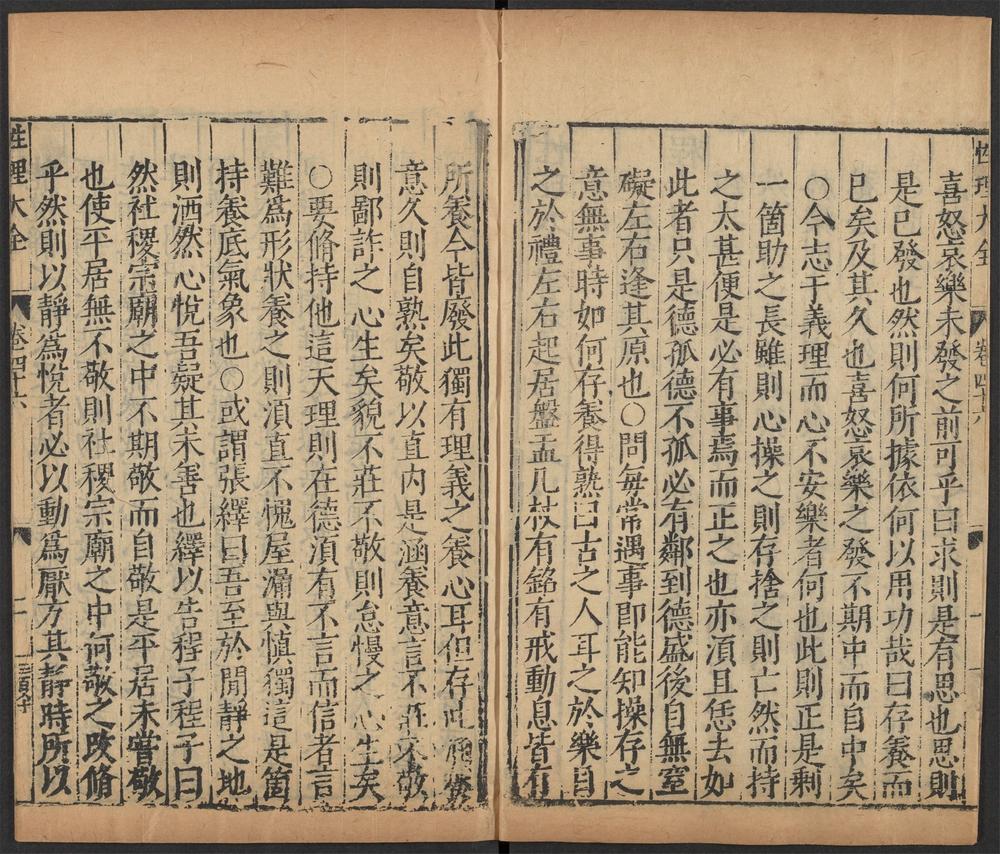 性理大全 卷四十六 一
喜怒哀樂未發之前可乎曰求則是有思也思則
是已發也然則何所據依何以用功哉曰存養而
已矣及其久也喜怒哀樂之發不期中而自中矣
○今志于義理而心不安樂者何也此則正是剩
一箇助之長雖則心操之則存捨之則亡然而持
之太甚便是必有事焉而正之也亦湏且恁去如
此者只是德孤德不孤必有鄰到德盛後自無窒
礙左右逢其原也○問每常遇事即能知操存之
意無事時如何存養得熟曰古之人耳之於樂目
之於禮左右起居盤盂几杖有銘有戒動息皆有
所養今皆廢此獨有理義之養心耳但存此涵養
意久則自熟矣敬以直內是涵養意言不莊不敬
則鄙詐之心生矣貌不莊不敬則怠慢之心生矣
○要脩持他這天理則在德湏有不言而信者言
難爲形狀養之則湏直不愧屋漏與慎獨這是箇
持養底氣象也○或謂張繹曰吾至於閒靜之地
則洒然心悅吾疑其未善也繹以告程子程子曰
然社稷宗廟之中不期敬而自敬是平居未嘗敬
也使平居無不敬則社稷宗廟之中何敬之改脩
乎然則以靜爲悅者必以動爲厭方其靜時所以
性理大全 卷四十六 二